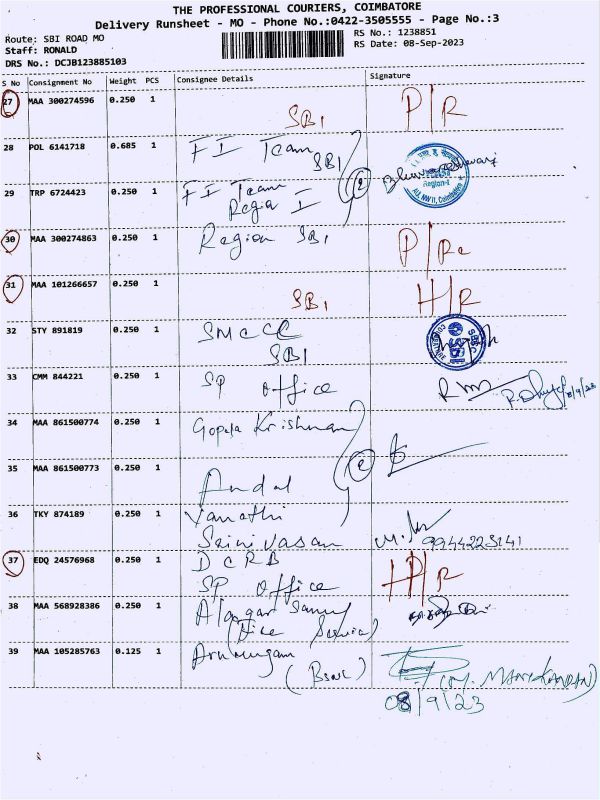 THE PROFESSIONAL COURIERS, COIMBATORE
Delivery Runsheet - MO - Phone No.:0422-3505555 - Page No.:3
Route: SBI ROAD MO
RS No.: 1238851
Staff: RONALD
RS Date: 08-Sep-2023
DRS No.: DCJB123885103
S No Consignment No Weight PCS Consignee Details Signature
27 MAA 300274596 0.250 1 SBI P/R
28 POL 6141718 0.685 1 FI Team
SBI
Region-I
29 TRP 6724423 0.250 1 FI Team
Regia I
30 MAA 300274863 0.250 1 Region SBI P/Re
31 MAA 101266657 0.250 1 SBI H/R
32 STY 891819 0.250 1 SMCCC
SBI
33 CMM 844221 0.250 1 SP office
34 MAA 861500774 0.250 1 Gopala Krishnan
35 MAA 861500773 0.250 1 Andal
36 TKY 874189 0.250 1 Vanathi
Srinivasan 9944223141
37 EDQ 24576968 0.250 1 DCRB
SP office
38 MAA 568928386 0.250 1 Alaagar Samy
39 MAA 105285763 0.125 1 Arumugam
(BSNL) (M. MANIKANDAN)
08/9/23